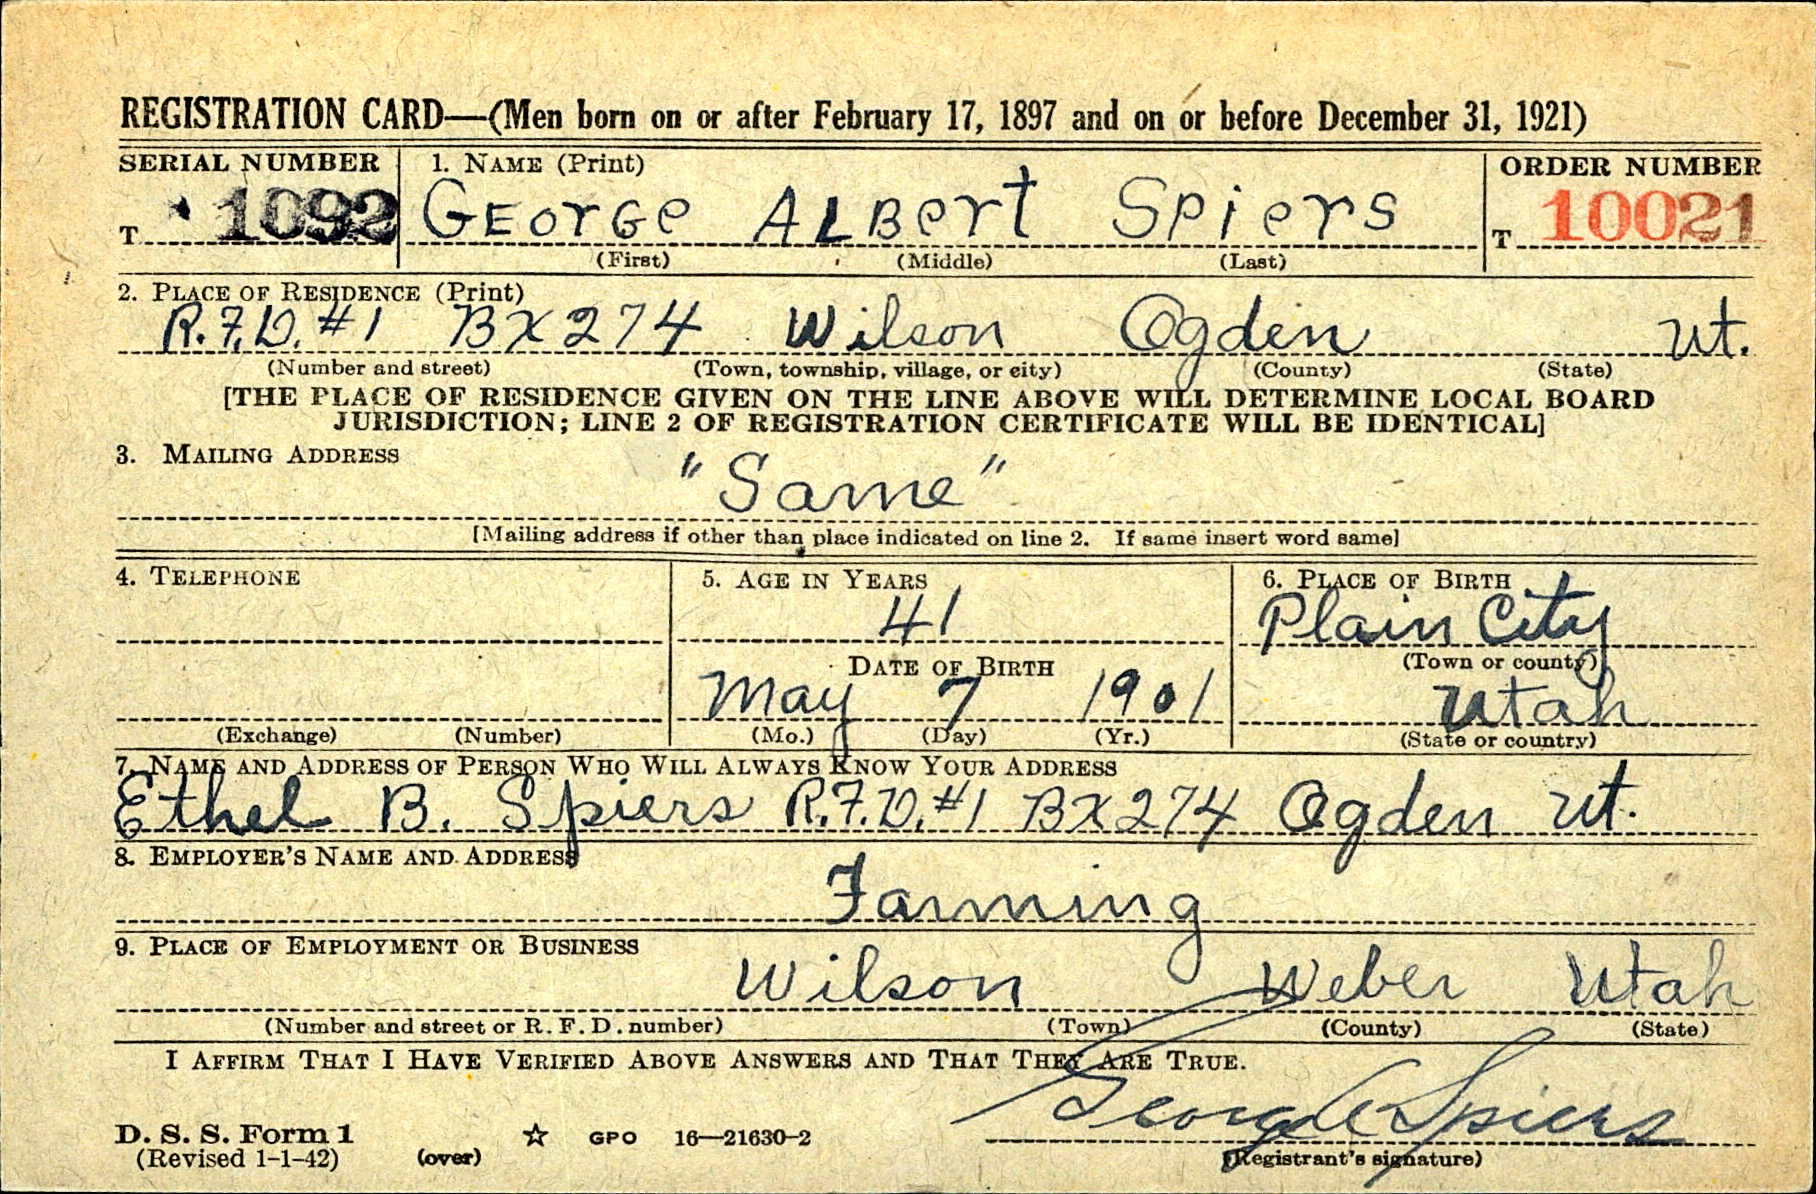 REGISTRATION CARD—(Men born on or after February 17, 1897 and on or before December 31, 1921)
SERIAL NUMBER 1. NAME (Print) ORDER NUMBER
T 1092 GEorGe ALBerT SPiers T 10021
(First) (Middle) (Last)
2. PLACE OF RESIDENCE (Print)
R.F.D. #1 BX 274 Wilson Ogden Ut.
(Number and street) (Town, township, village, or city) (County) (State)
[THE PLACE OF RESIDENCE GIVEN ON THE LINE ABOVE WILL DETERMINE LOCAL BOARD
JURISDICTION; LINE 2 OF REGISTRATION CERTIFICATE WILL BE IDENTICAL]
3. MAILING ADDRESS
"Same"
[Mailing address if other than place indicated on line 2. If same insert word same]
4. TELEPHONE 5. AGE IN YEARS 6. PLACE OF BIRTH
41 Plain City
DATE OF BIRTH (Town or county)
May 7 1901 Utah
(Exchange) (Number) (Mo.) (Day) (Yr.) (State or country)
7. NAME AND ADDRESS OF PERSON WHO WILL ALWAYS KNOW YOUR ADDRESS
Ethel B. Spiers R.F.D. #1 BX 274 Ogden Ut.
8. EMPLOYER'S NAME AND ADDRESS
Farming
9. PLACE OF EMPLOYMENT OR BUSINESS
Wilson Weber Utah
(Number and street or R. F. D. number) (Town) (County) (State)
I AFFIRM THAT I HAVE VERIFIED ABOVE ANSWERS AND THAT THEY ARE TRUE.
George A Spiers
D. S. S. Form 1
(Revised 1-1-42) (over) ☆ GPO 16—21630-2 (Registrant's signature)